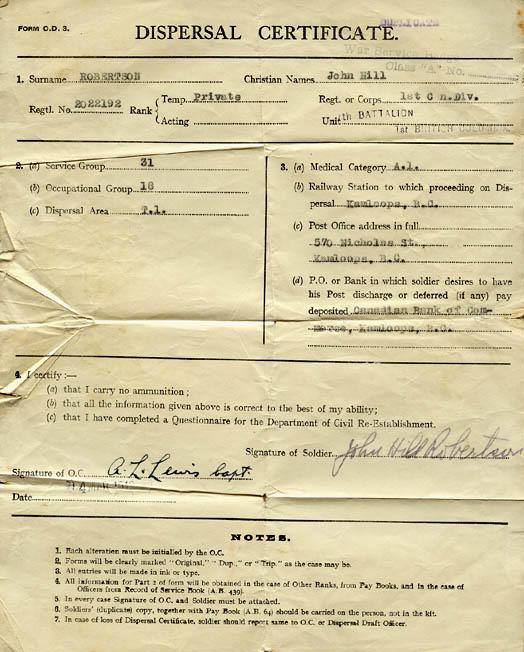 FORM O.D. 3.
DUPLICATE
DISPERSAL CERTIFICATE.
War Service Badge
Class "A" No.
1. Surname ROBERTSON Christian Names John Hill
Regtl. No. 2022192 Rank { Temp. Private Regt. or Corps 1st C n. Div.
Acting Unit th BATTALION
1st BRITISH COLUMBIA
2. (a) Service Group 31
(b) Occupational Group 18
(c) Dispersal Area T.1.
3. (a) Medical Category A.1.
(b) Railway Station to which proceeding on Dis-
persal Kamloops, B.C.
(c) Post Office address in full
570 Nicholas St.,
Kamloops, B.C.
(d) P.O. or Bank in which soldier desires to have
his Post discharge or deferred (if any) pay
deposited Canadian Bank of Com-
merce, Kamloops, B.C.
4. I certify :—
(a) that I carry no ammunition ;
(b) that all the information given above is correct to the best of my ability;
(c) that I have completed a Questionnaire for the Department of Civil Re-Establishment.
Signature of Soldier John Hill Robertson
Signature of O.C. A. L. Lewis Capt.
Date
NOTES.
1. Each alteration must be initialled by the O.C.
2. Forms will be clearly marked "Original," "Dup.," or "Trip." as the case may be.
3. All entries will be made in ink or type.
4. All information for Part 2 of form will be obtained in the case of Other Ranks, from Pay Books, and in the case of
Officers from Record of Service Book (A.B. 439).
5. In every case Signature of O.C. and Soldier must be attached.
6. Soldiers' (duplicate) copy, together with Pay Book (A.B. 64) should be carried on the person, not in the kit.
7. In case of loss of Dispersal Certificate, soldier should report same to O.C. or Dispersal Draft Officer.